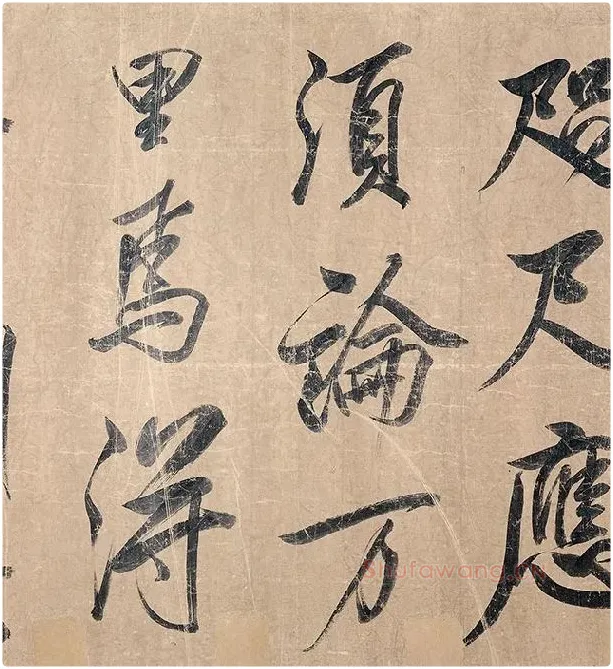 咫尺應
須論万
里焉得
Shufawang.cn